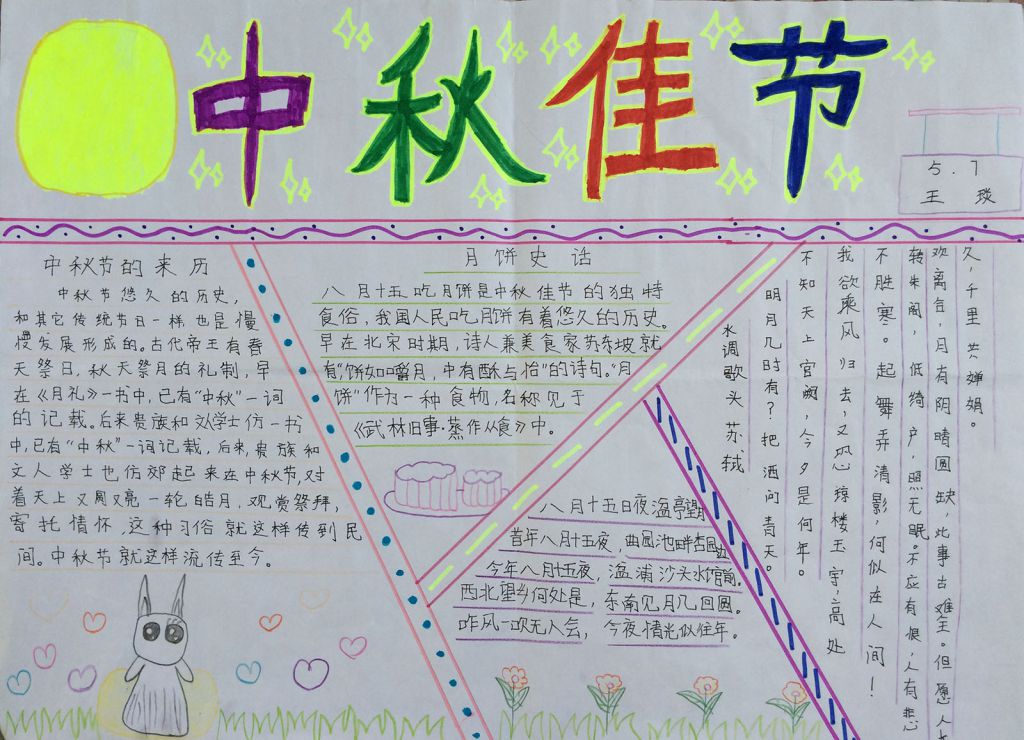 中秋佳节
5.7
王琰
中秋节的来历
中秋节悠久的历史，
和其它传统节日一样也是慢
慢发展形成的。古代帝王有春
天祭日，秋天祭月的礼制，早
在《月礼》一书中，已有“中秋”一词
的记载。后来贵族和文学士仿一书
中，已有“中秋”一词记载，后来，贵族和
文人学士也仿郊起来在中秋节，对
着天上又圆又亮一轮皓月，观赏祭拜，
寄托情怀，这种习俗就这样传到民
间。中秋节就这样流传至今。
月饼史话
八月十五吃月饼是中秋佳节的独特
食俗，我国人民吃月饼有着悠久的历史。
早在北宋时期，诗人兼美食家苏东坡就
有“饼如嚼月，中有酥与怡”的诗句。“月
饼”作为一种食物，名称见于
《武林旧事·蒸作从食》中。
八月十五日夜湓亭望月
昔年八月十五夜，曲园池畔杏园边
今年八月十五夜，湓浦沙头水馆前。
西北望乡何处是，东南见月几回圆。
咋风一吹无人会，今夜情光似往年。
水调歌头 苏轼
明月几时有？把洒问青天。
不知天上官阙，今夕是何年。
我欲乘风归去，又恐琼楼玉宇，高处
不胜寒。起舞弄清影，何似在人间！
转朱阁，低绮户，照无眠。不应有恨，人有悲
欢离合，月有阴晴圆缺，此事古难全。但愿人长
久，千里共婵娟。